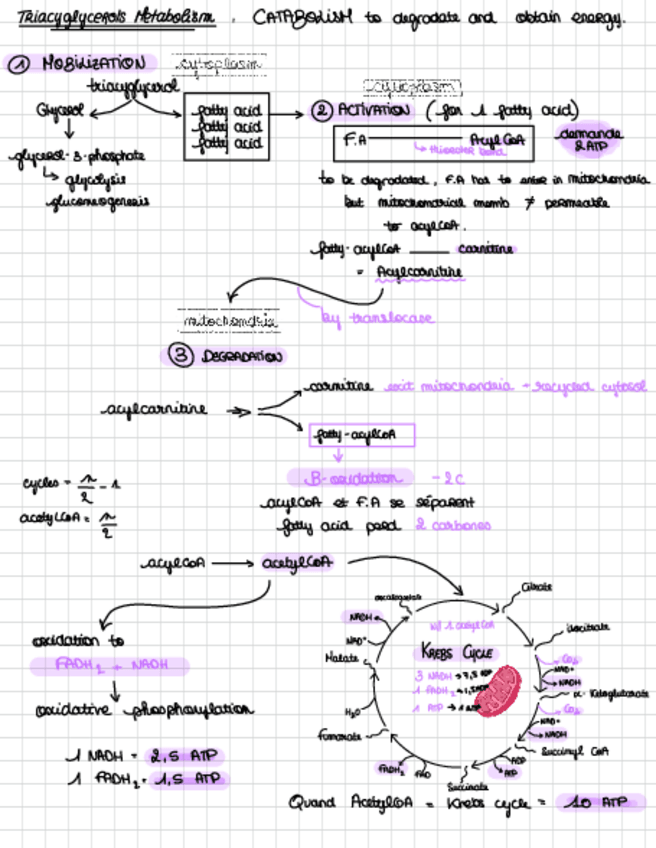 Triacyglycerols Metabolism . CATABOLISM to degradate and obtain energy.
① MOBILIZATION cytoplasm
triacyglycerol
cytoplasm
Glycerol
fatty acid
fatty acid
fatty acid
② ACTIVATION (for 1 fatty acid)
F.A Acyl CoA
thioester bond
demande
2 ATP
glycerol-3-phosphate
glycolysis
gluconeogenesis
to be degradated, F.A has to enter in mitochondria
but mitochondrial memb ≠ permeable
to acylCoA.
fatty-acylCoA carnitine
= Acylcarnitine
by translocase
mitochondria
③ DEGRADATION
carnitine exit mitochondria → recycled cytosol
acylcarnitine
fatty-acylCoA
B-oxidation - 2c
cycles = n/2 - 1
acetylCoA = n/2
acylCoA et F.A se séparent
fatty acid perd 2 carbones
acylCoA → acetylCoA
oxidation to
FADH₂ + NADH
oxidative phosphorylation
1 NADH = 2,5 ATP
1 FADH₂ = 1,5 ATP
oxaloacetate
Citrate
isocitrate
NADH
NAD+
w/ 1 acetyl CoA
KREBS CYCLE
3 NADH → 7,5 ATP
1 FADH₂ → 1,5 ATP
1 ATP → 1 ATP
Malate
H₂O
Fumarate
FADH₂
FAD
Succinate
ADP
ATP
Succinyl CoA
CO₂
NAD+
NADH
α-Ketoglutarate
CO₂
NAD+
NADH
Quand AcetylCoA = Krebs cycle = 10 ATP